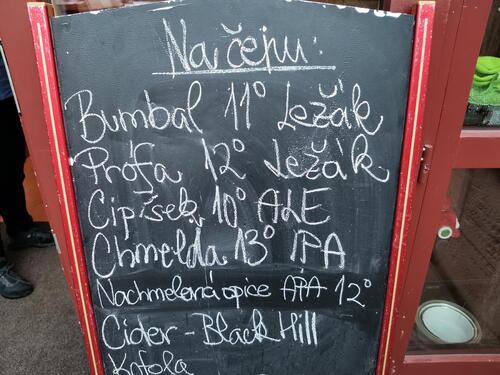 Na čepu:
Bumbal 11° Ležák
Prófa 12° Ležák
Cipísek 10° ALE
Chmelda 13° IPA
Nachmelená opice APA 12°
Cider - Black Hill
Kofola